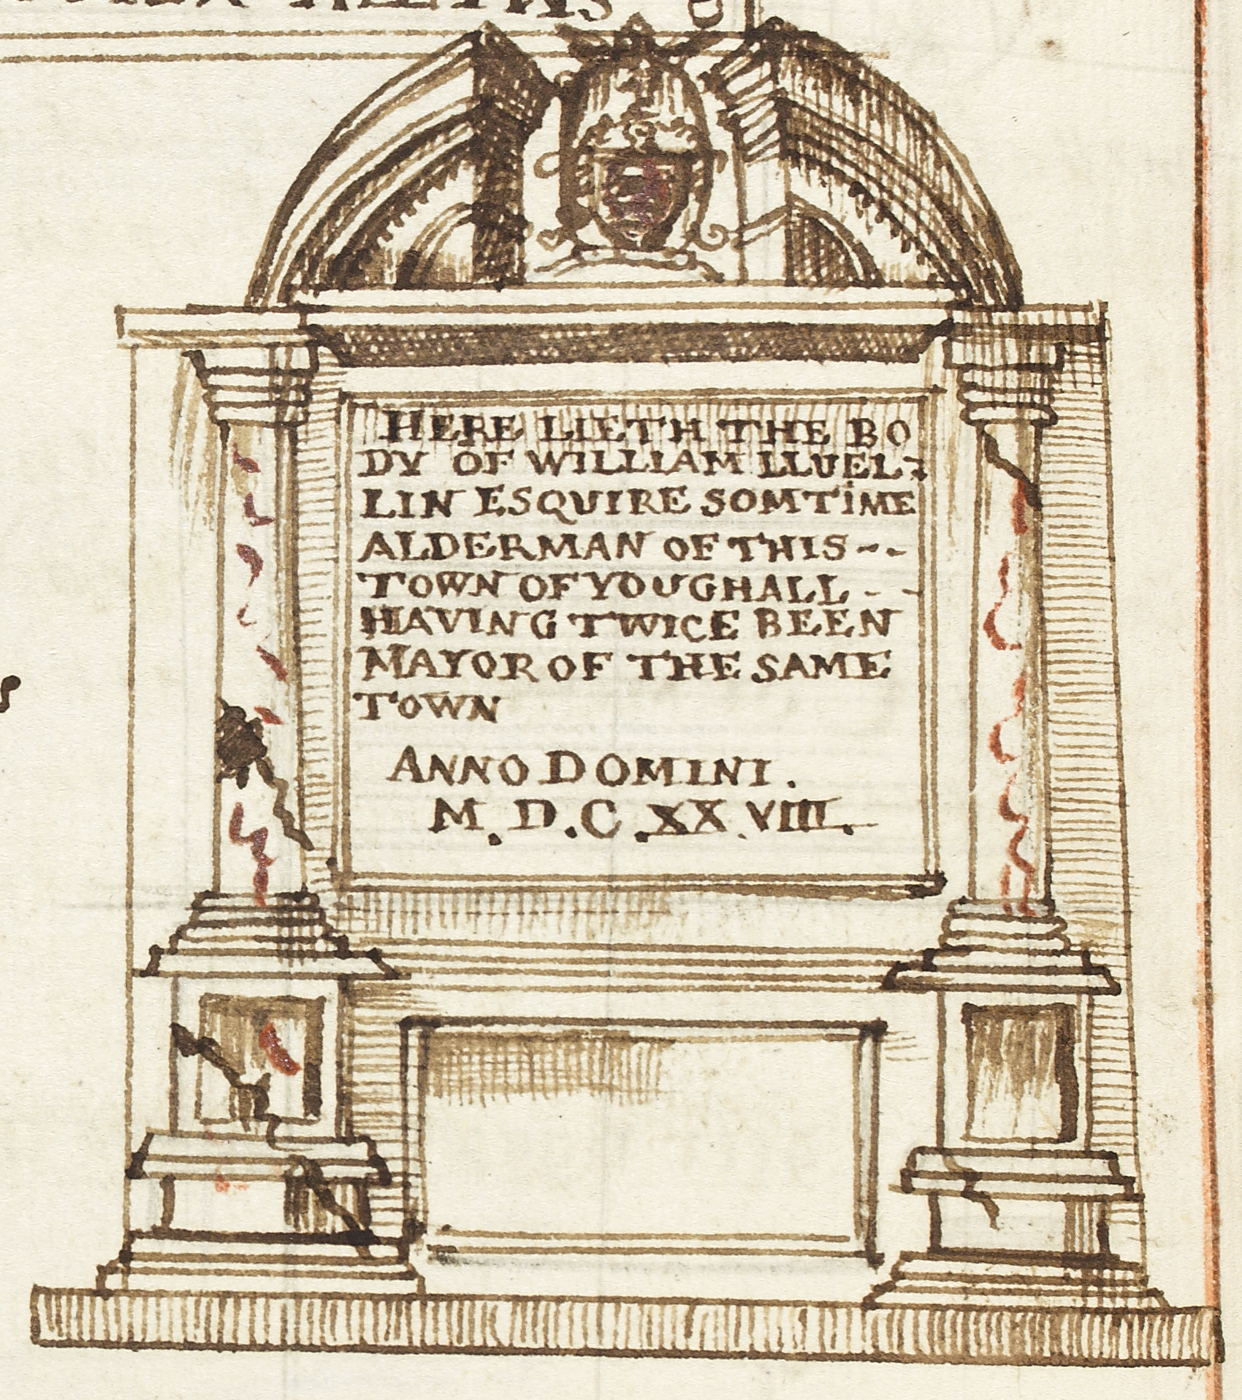 HERE LIETH THE BO
DY OF WILLIAM LLUEL-
LIN ESQUIRE SOMTIME
ALDERMAN OF THIS --
TOWN OF YOUGHALL --
HAVING TWICE BEEN
MAYOR OF THE SAME
TOWN
ANNO DOMINI.
M.D.C.XX.VIII.